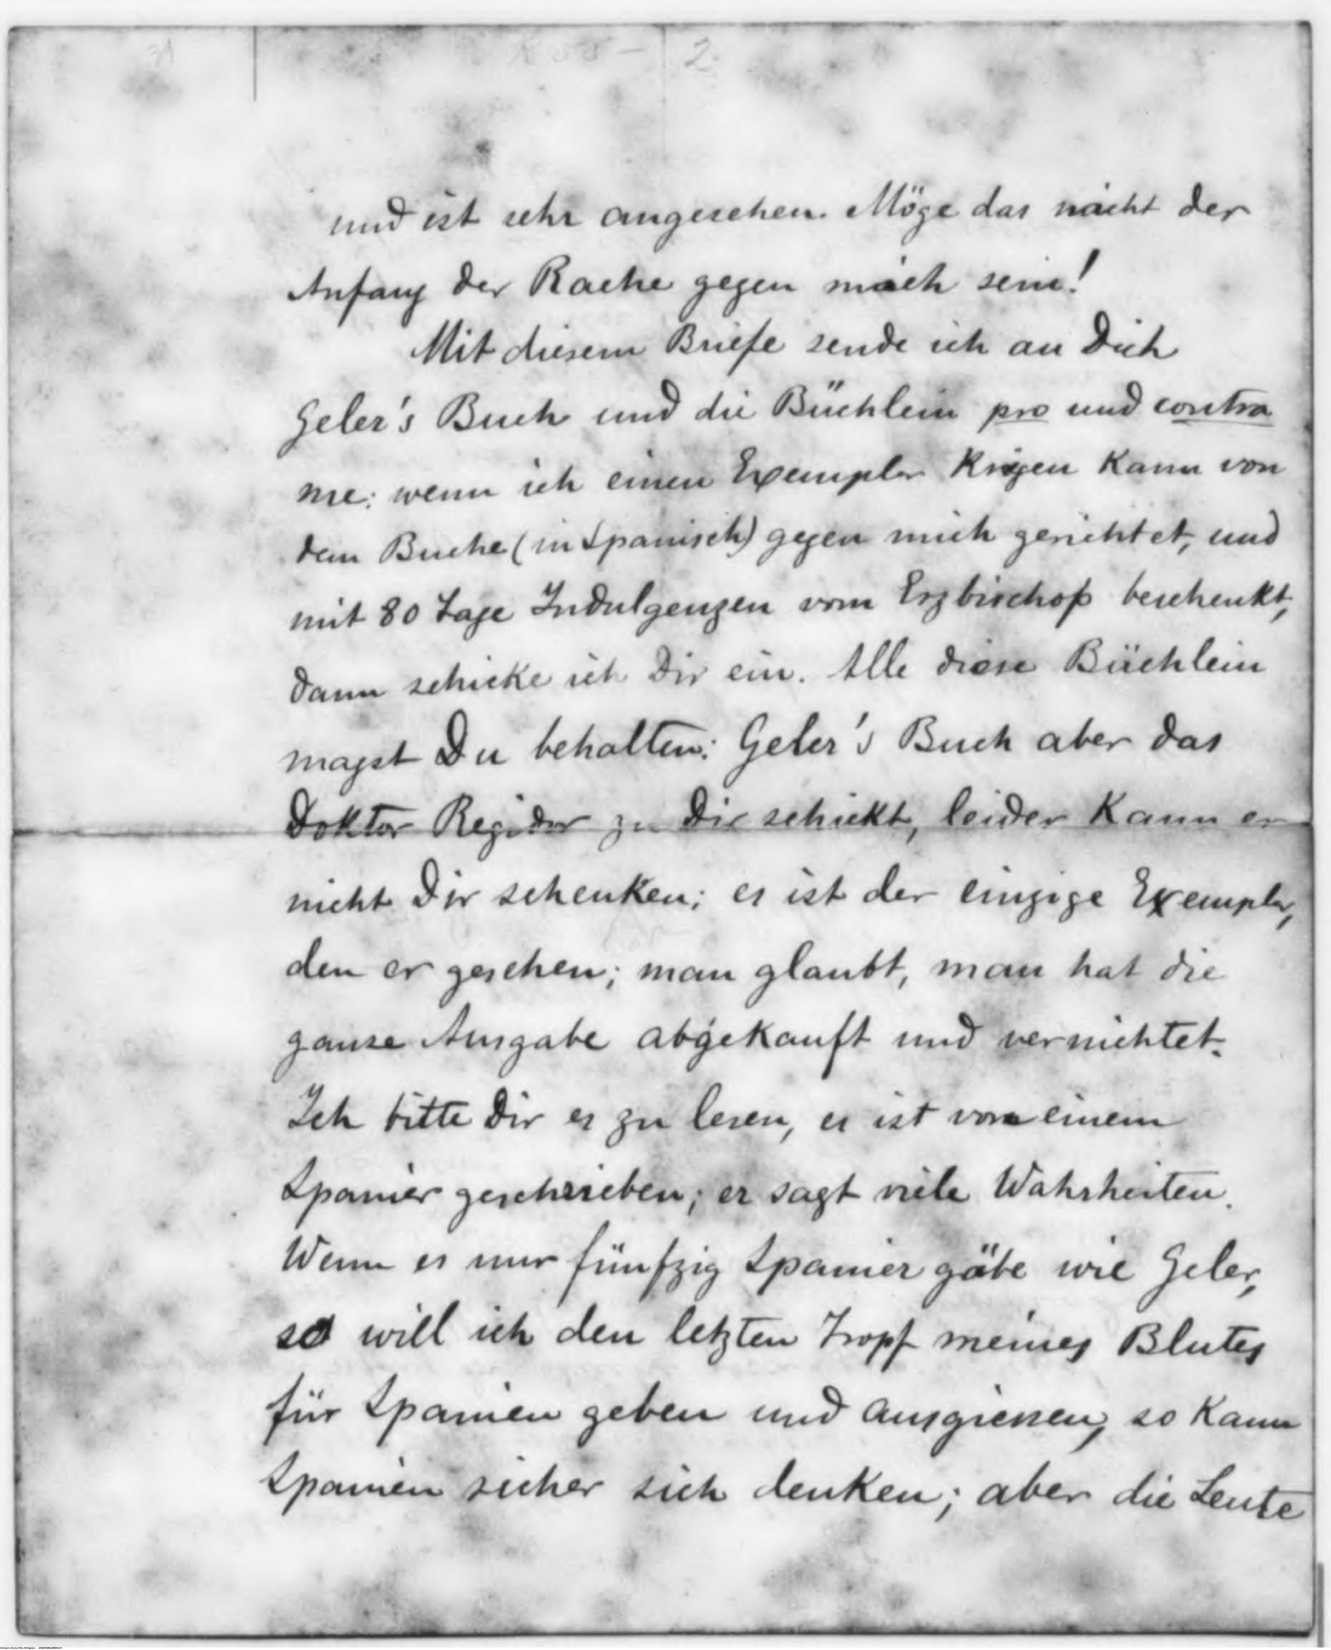 2
und ist sehr angesehen. Möge das nicht der
Anfang der Rache gegen mich sein!
Mit diesem Briefe sende ich an Dich
Geler's Buch und die Büchlein pro und contra
me: wenn ich einen Exemplar krigen kann von
dem Buche (in Spanisch) gegen mich gerichtet, und
mit 80 Tage Indulgenzen vom Erzbischof beschenkt,
dann schicke ich Dir ein. Alle diese Büchlein
magst Du behalten: Geler's Buch aber das
Doktor Regidor zu Dir schickt, leider kann er
nicht Dir schenken; es ist der einzige Exemplar,
den er gesehen; man glaubt, man hat die
ganze Ausgabe abgekauft und vernichtet.
Ich bitte Dir es zu lesen, es ist von einem
Spanier geschrieben; er sagt viele Wahrheiten.
Wenn es nur fünfzig Spanier gäbe wie Geler,
so will ich den letzten Tropf meines Blutes
für Spanien geben und ausgiessen, so kann
Spanien sicher sich denken; aber die Leute